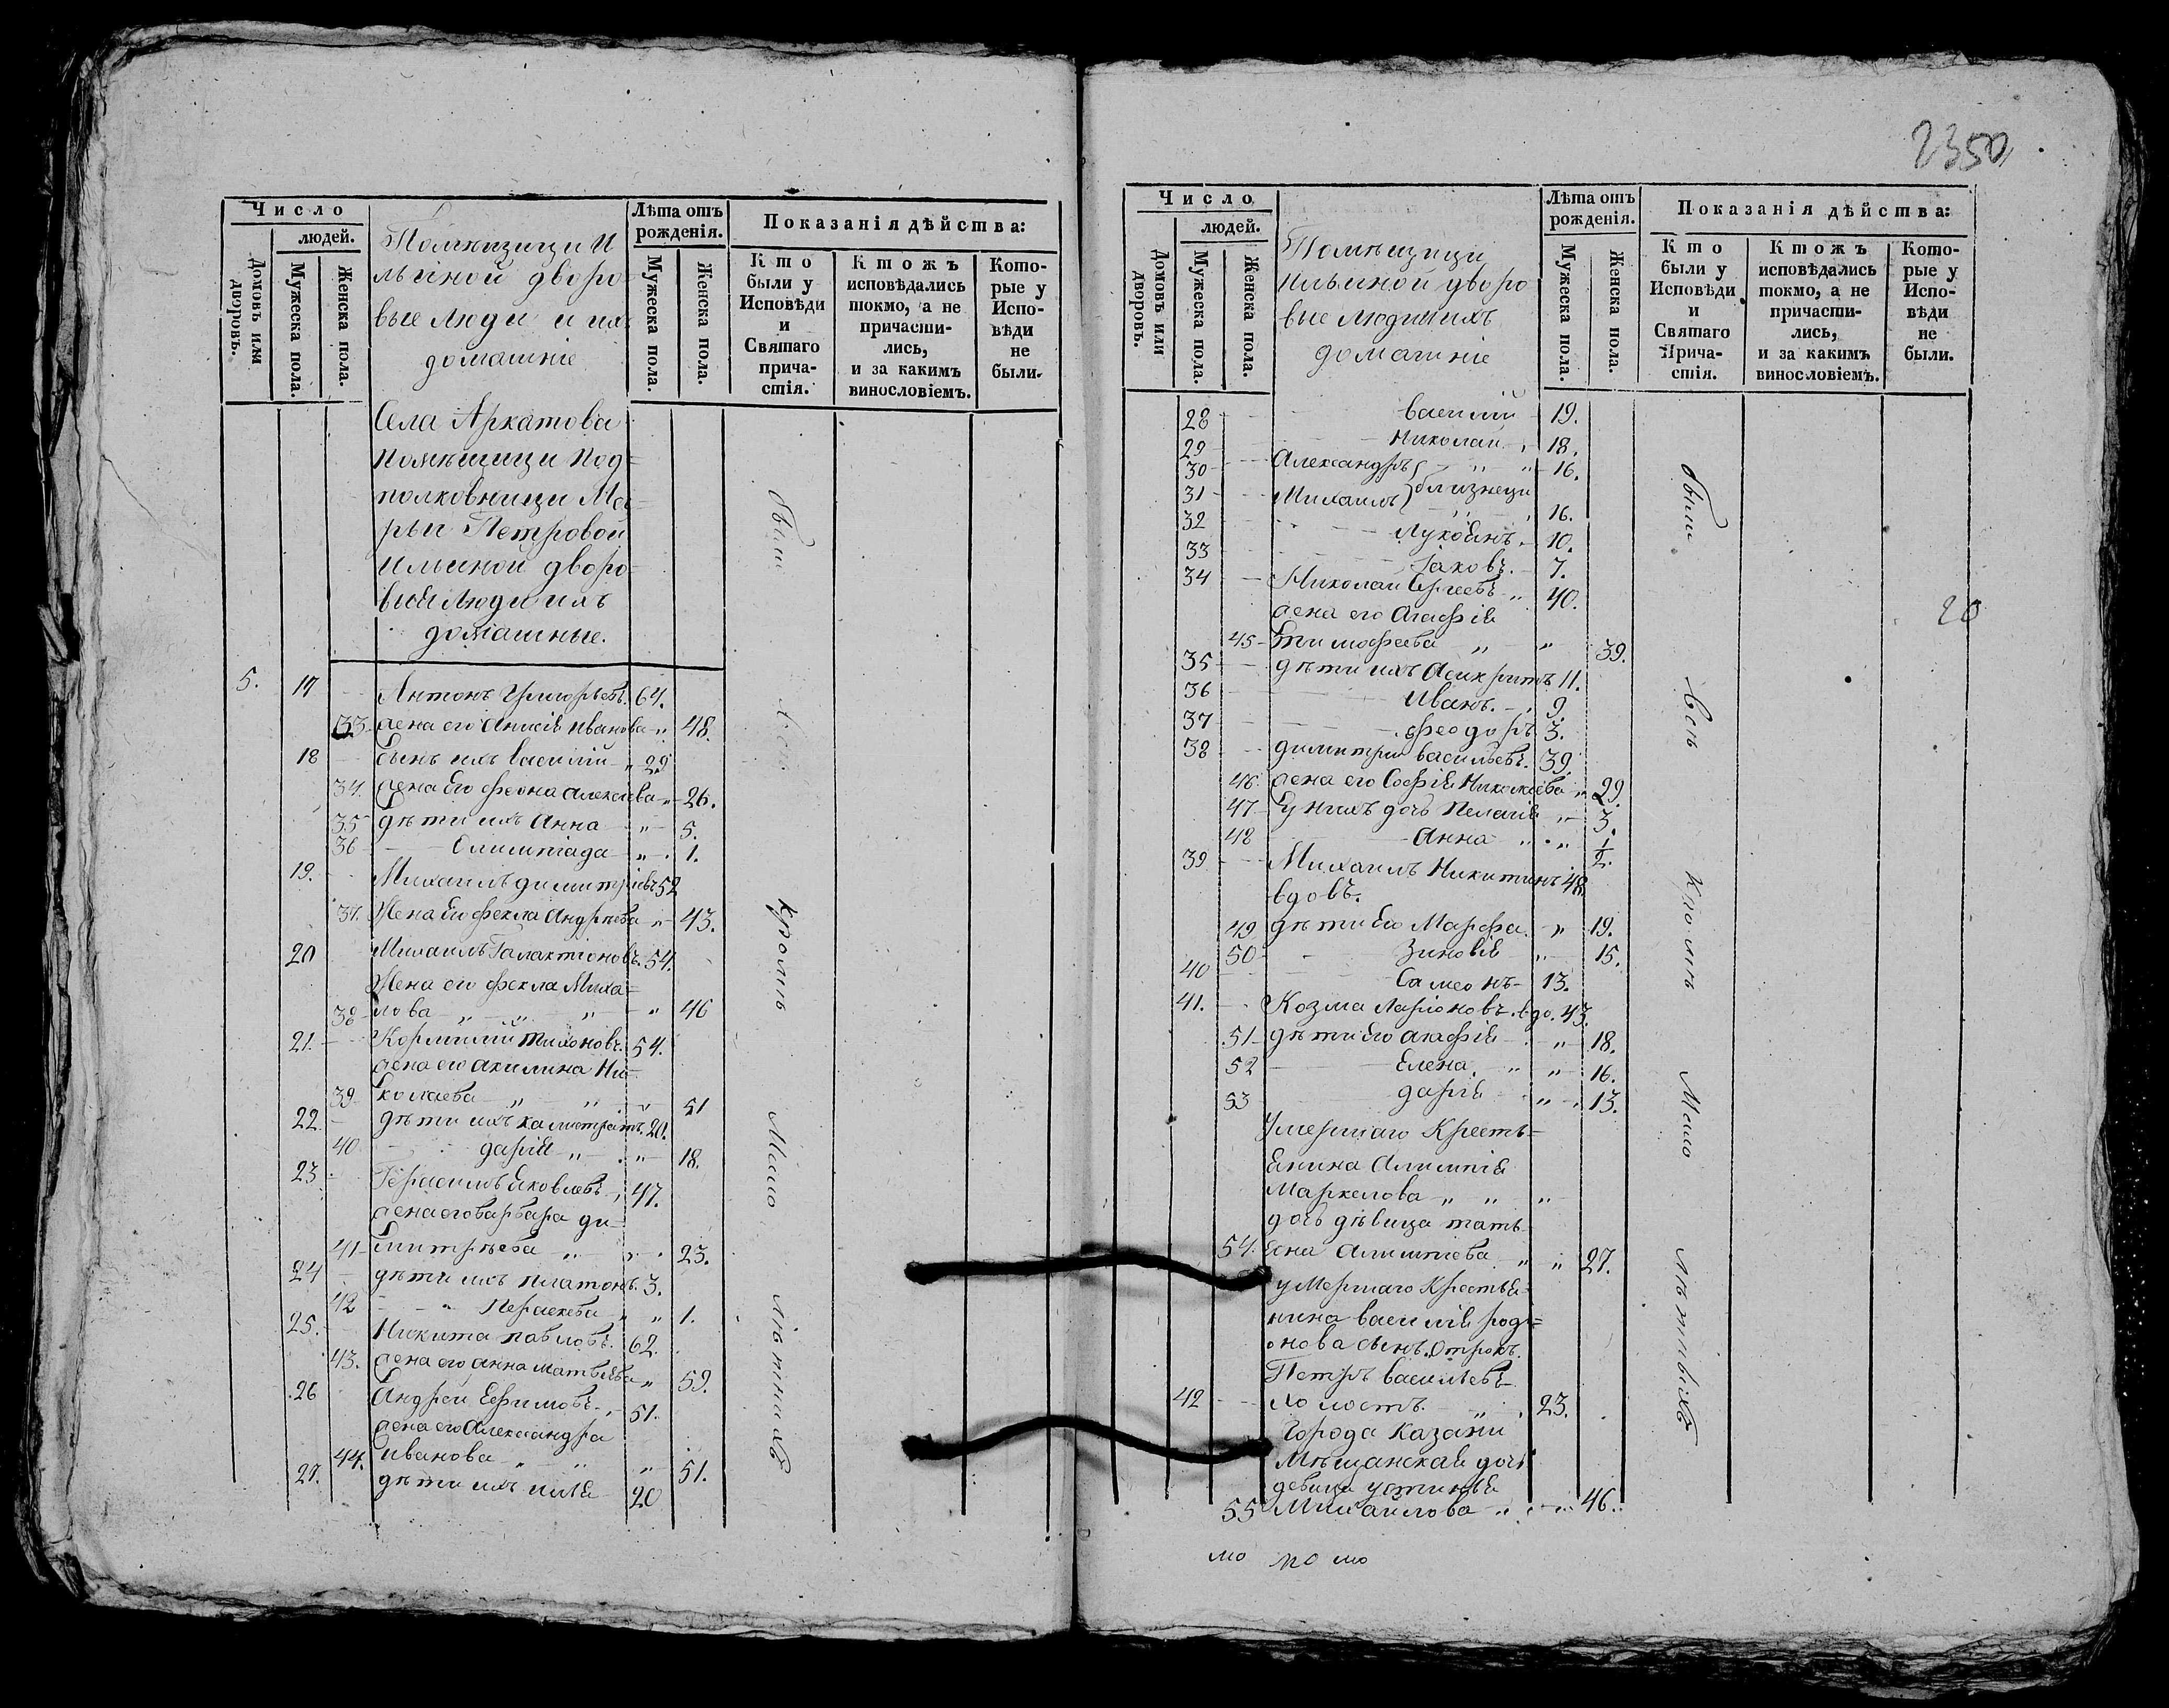 Число
людей.
Домовъ или дворовъ.
Мужеска пола.
Женска пола.
Помѣщицы И
льиной дворо=
вые люди и ихъ
домашніе
Лѣта отъ рожденія.
Мужеска пола.
Женска пола.
Показанія дѣйства:
Кто были у Исповѣди и Святаго причастія.
Ктожъ исповѣдались токмо, а не причастились, и за какимъ винословіемъ.
Которые у Исповѣди не были.
Села Аркатова
помѣщицы под=
полковницы Ма=
рьи Петровой
Ильиной дворо=
выи люди ихъ
домашные.
5. 17 Антонъ Григорьевъ. 64.
33 жена его Анисія Иванова " 48.
18 сынъ ихъ Василій " 29
34. жена его Феона Алексеева " 26.
35 дѣти ихъ Анна " 5.
36 Олимпіада " 1.
19. Михаилъ Димитріевъ 52
37. Жена его Фекла Андреева " 43.
20 Михаилъ Галактіоновъ. 54.
Жена его Фекла Миха=
38 лова " " " " 46
21. Корнилій Тихоновъ. 54.
жена его Акилина Ни=
39 колаева " " " 51
22. дѣти ихъ Калистратъ. 20.
40 дарія " " 18.
23 Герасимъ Яковлевъ 47.
жена его Варвара ди=
41 митріева " " 23.
24 дѣти ихъ Платонъ. 3.
42 Параскева " " 1.
25. Никита Павловъ. 62.
43. жена его Анна Матвѣева " 59.
26 Андрей Ефимовъ. 51.
жена его Александра
44. Иванова " " " 51.
27. дѣти ихъ Илія 20
были
всѣ
кромѣ
Мало
лѣтныхъ
2350
Число
людей.
Домовъ или дворовъ.
Мужеска пола.
Женска пола.
Помѣщицы
Ильиной дворо
вые люди и ихъ
домашніе
Лѣта отъ рожденія.
Мужеска пола.
Женска пола.
Показанія дѣйства:
Кто были у Исповѣди и Святаго Причастія.
Ктожъ исповѣдались токмо, а не причастились, и за какимъ винословіемъ.
Которые у Исповѣди не были.
28 Василій 19.
29 Николай 18.
30 Александръ " " 16.
31 Михаилъ близнецы 16.
32 Лукоянъ. 10.
33 Іаковъ. 7.
34 Николай Сергеевъ " 40.
жена его Агафія
45 Тимофеева " " 39.
35 дѣти ихъ Асикритъ 11.
36 Иванъ. 9.
37 Феодоръ 3.
38 димитрій Васильевъ. 39.
46 жена его Софія Николаева " 29.
47 у нихъ дочь Пелагія " 3.
48 Анна " " 1/2.
39 Михаилъ Никитинъ 48
вдовъ.
49 дѣти его Марфа. " 19.
50 Зиновія " 15.
40 Самсонъ 13.
41. Козма Ларіоновъ. вдо. 43.
51 дѣти его Агафія " 18.
52 Елена. " " 16.
53 дарія " 13.
умершаго Кресть=
янина Алимпія
Маркелова " " "
дочь дѣвица тать=
54. яна Алимпіева " " 27.
умершаго Крестья=
нина Василія роди=
онова сынъ. отрокъ.
Петръ Васильевъ
42 холостъ. " 23.
Города Казани
Мѣщанская дочь
девица устинья
55 Михайлова " " 46.
были
всѣ
кромѣ
Мало
лѣтныхъ
20
мо по мо